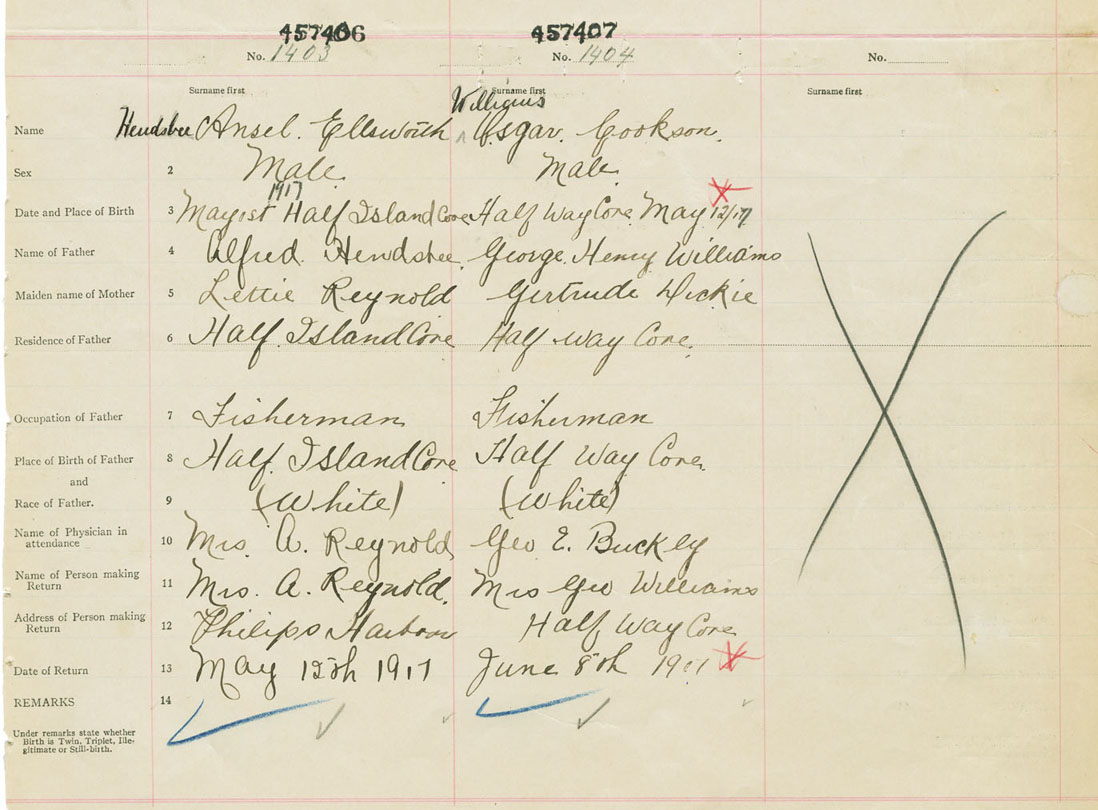 457406 457407
No. 1403 No. 1404 No.
Surname first Surname first Surname first
Williams
Name Hendsbee Ansel. Ellsworth ^ Osgar. Cookson.
Sex 2 Male. Male.
1917
Date and Place of Birth 3 May 1st Half Island Cove Half Way Cove May 12/17
Name of Father 4 Alfred. Hendsbee. George. Henry Williams
Maiden name of Mother 5 Lettie Reynold Gertrude Dickie
Residence of Father 6 Half. Island Cove Half way Cove.
Occupation of Father 7 Fisherman Fisherman
Place of Birth of Father 8 Half. Island Cove Half Way Cove.
and
Race of Father. 9 (White) (White)
Name of Physician in
attendance 10 Mrs. A. Reynold, Geo E. Buckley
Name of Person making
Return 11 Mrs. A. Reynold. Mrs Geo Williams
Address of Person making
Return 12 Philips Harbour Half Way Cove
Date of Return 13 May 12th 1917 June 8th 1917
REMARKS 14
Under remarks state whether
Birth is Twin, Triplet, Ille-
gitimate or Still-birth.